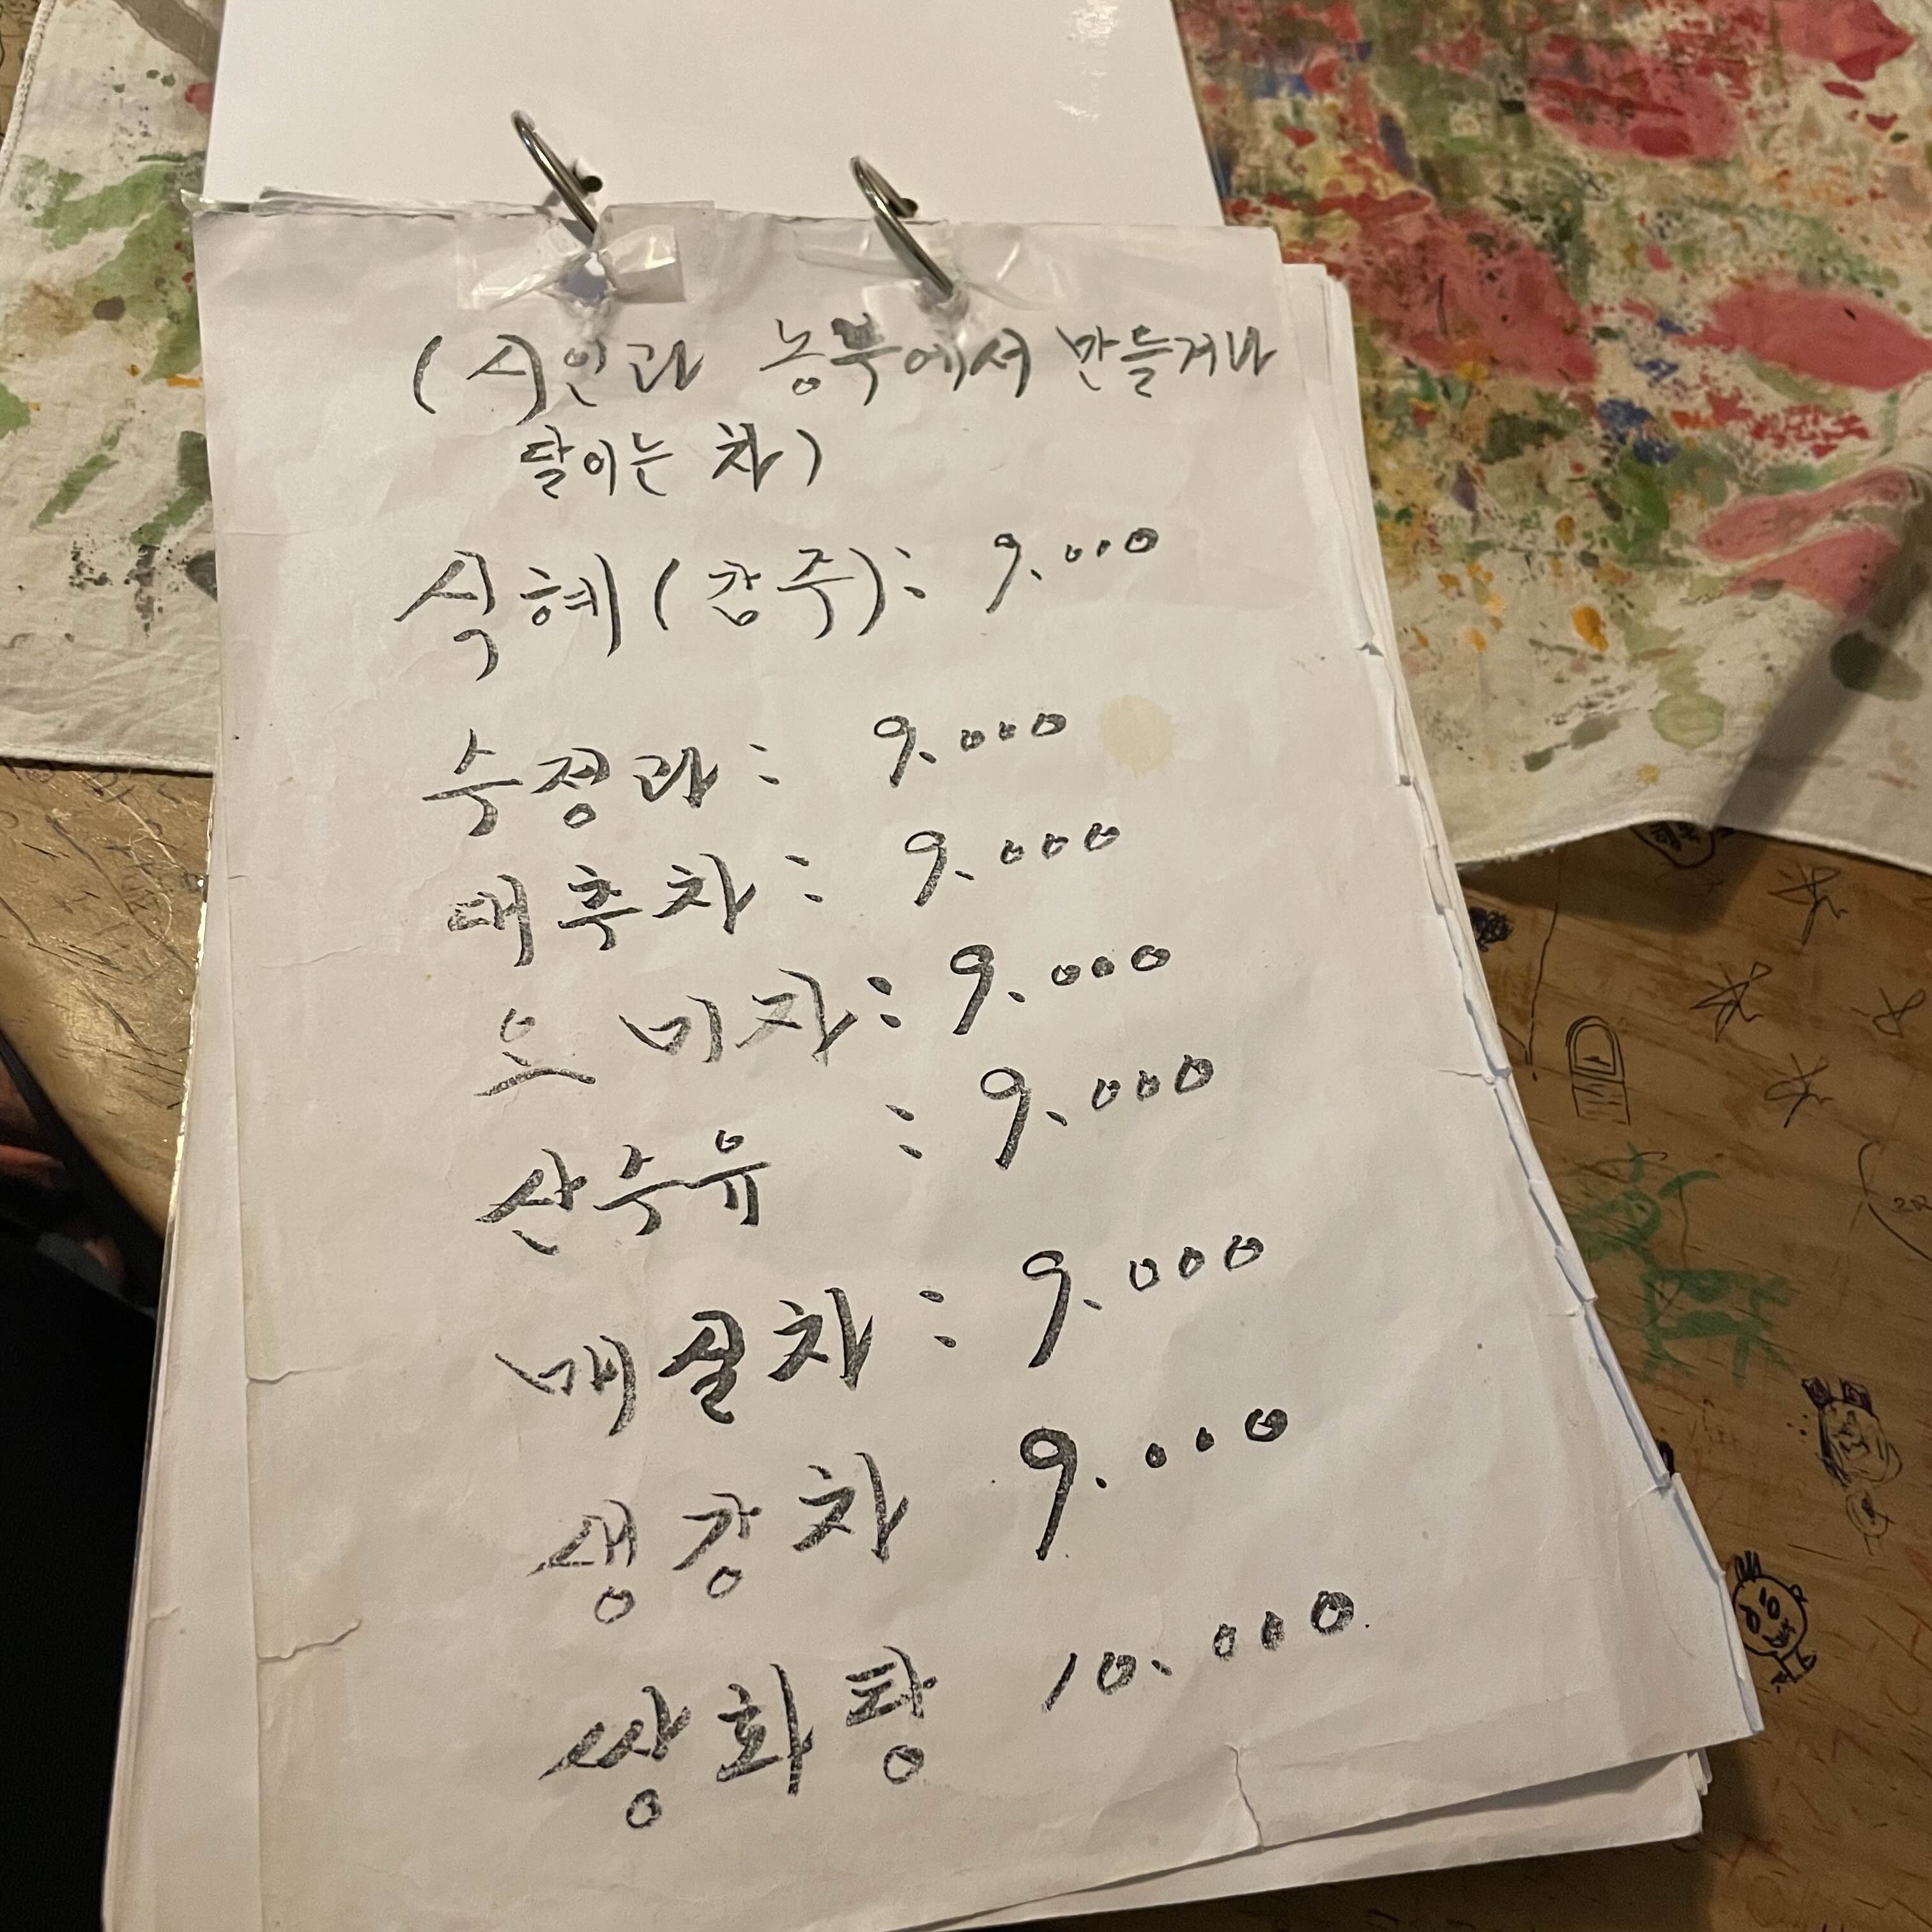 (시인과 농부에서 만들거나
달이는 차)
식혜(감주): 9.000
수정과: 9.000
대추차: 9.000
오미자: 9.000
산수유 : 9.000
매실차: 9.000
생강차 9.000
쌍화탕 10.000